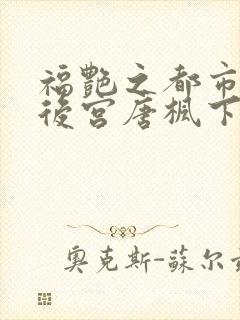 福艷之都市
後宮唐楓下
奧克斯-蘇尔